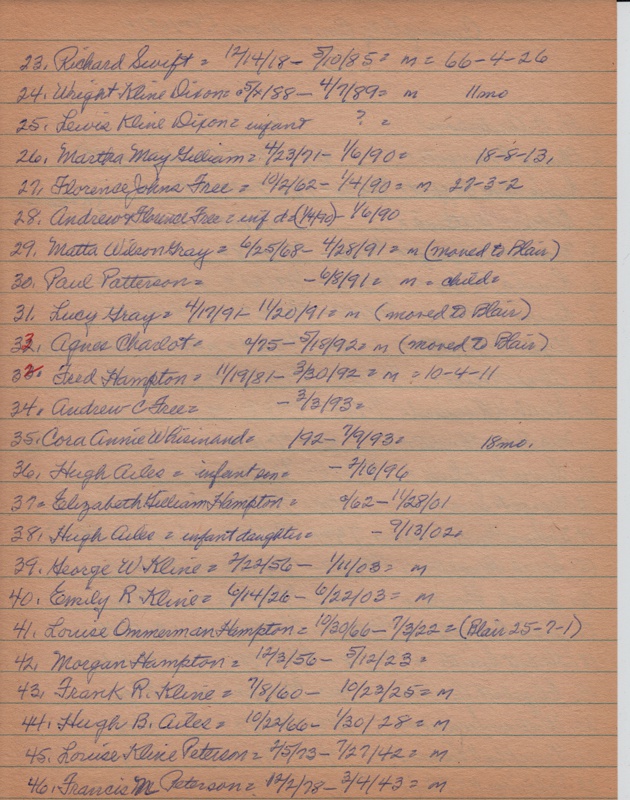 23. Richard Swift = 12/14/18 - 5/10/85 = m = 66-4-26
24. Wright Kline Dixon = 5/2/88 - 4/7/89 = m 11mo
25. Lewis Kline Dixon = infant ? =
26. Martha May Gilliam = 4/23/71 - 1/6/90 = 18-8-13.
27. Florence Johns Free = 10/2/62 - 1/4/90 = m 27-3-2
28. Andrew & Florence Free = inf d = (1/4/90) - 1/6/90
29. Matta Wilson Gray = 6/25/68 - 4/28/91 = m (moved to Blair)
30. Paul Patterson = - 6/8/91 = m = child =
31. Lucy Gray = 4/17/91 - 11/20/91 = m (moved to Blair)
32. Agnes Charlot = /75 - 5/18/92 = m (moved to Blair)
33. Fred Hampton = 11/19/81 - 3/30/92 = m = 10-4-11
34. Andrew C Free = - 3/3/93 =
35. Cora Annie Whisinand = /92 - 7/9/93 = 18mo.
36. Hugh Ailes = infant son = - 2/16/96
37 = Elizabeth Gilliam Hampton = /62 - 11/28/01
38. Hugh Ailes = infant daughter = - 9/13/02 =
39. George W Kline = 2/22/56 - 1/11/03 = m
40. Emily R Kline = 6/14/26 - 6/22/03 = m
41. Louise Ommerman Hampton = 10/30/66 - 7/3/22 = (Blair 25-7-1)
42. Morgan Hampton = 12/3/56 - 5/12/23 =
43. Frank R. Kline = 7/8/60 - 10/23/25 = m
44. Hugh B. Ailes = 10/22/66 - 1/30/28 = m
45. Louise Kline Peterson = 2/5/73 - 7/27/42 = m
46. Francis M Peterson = 12/2/78 - 3/4/43 = m